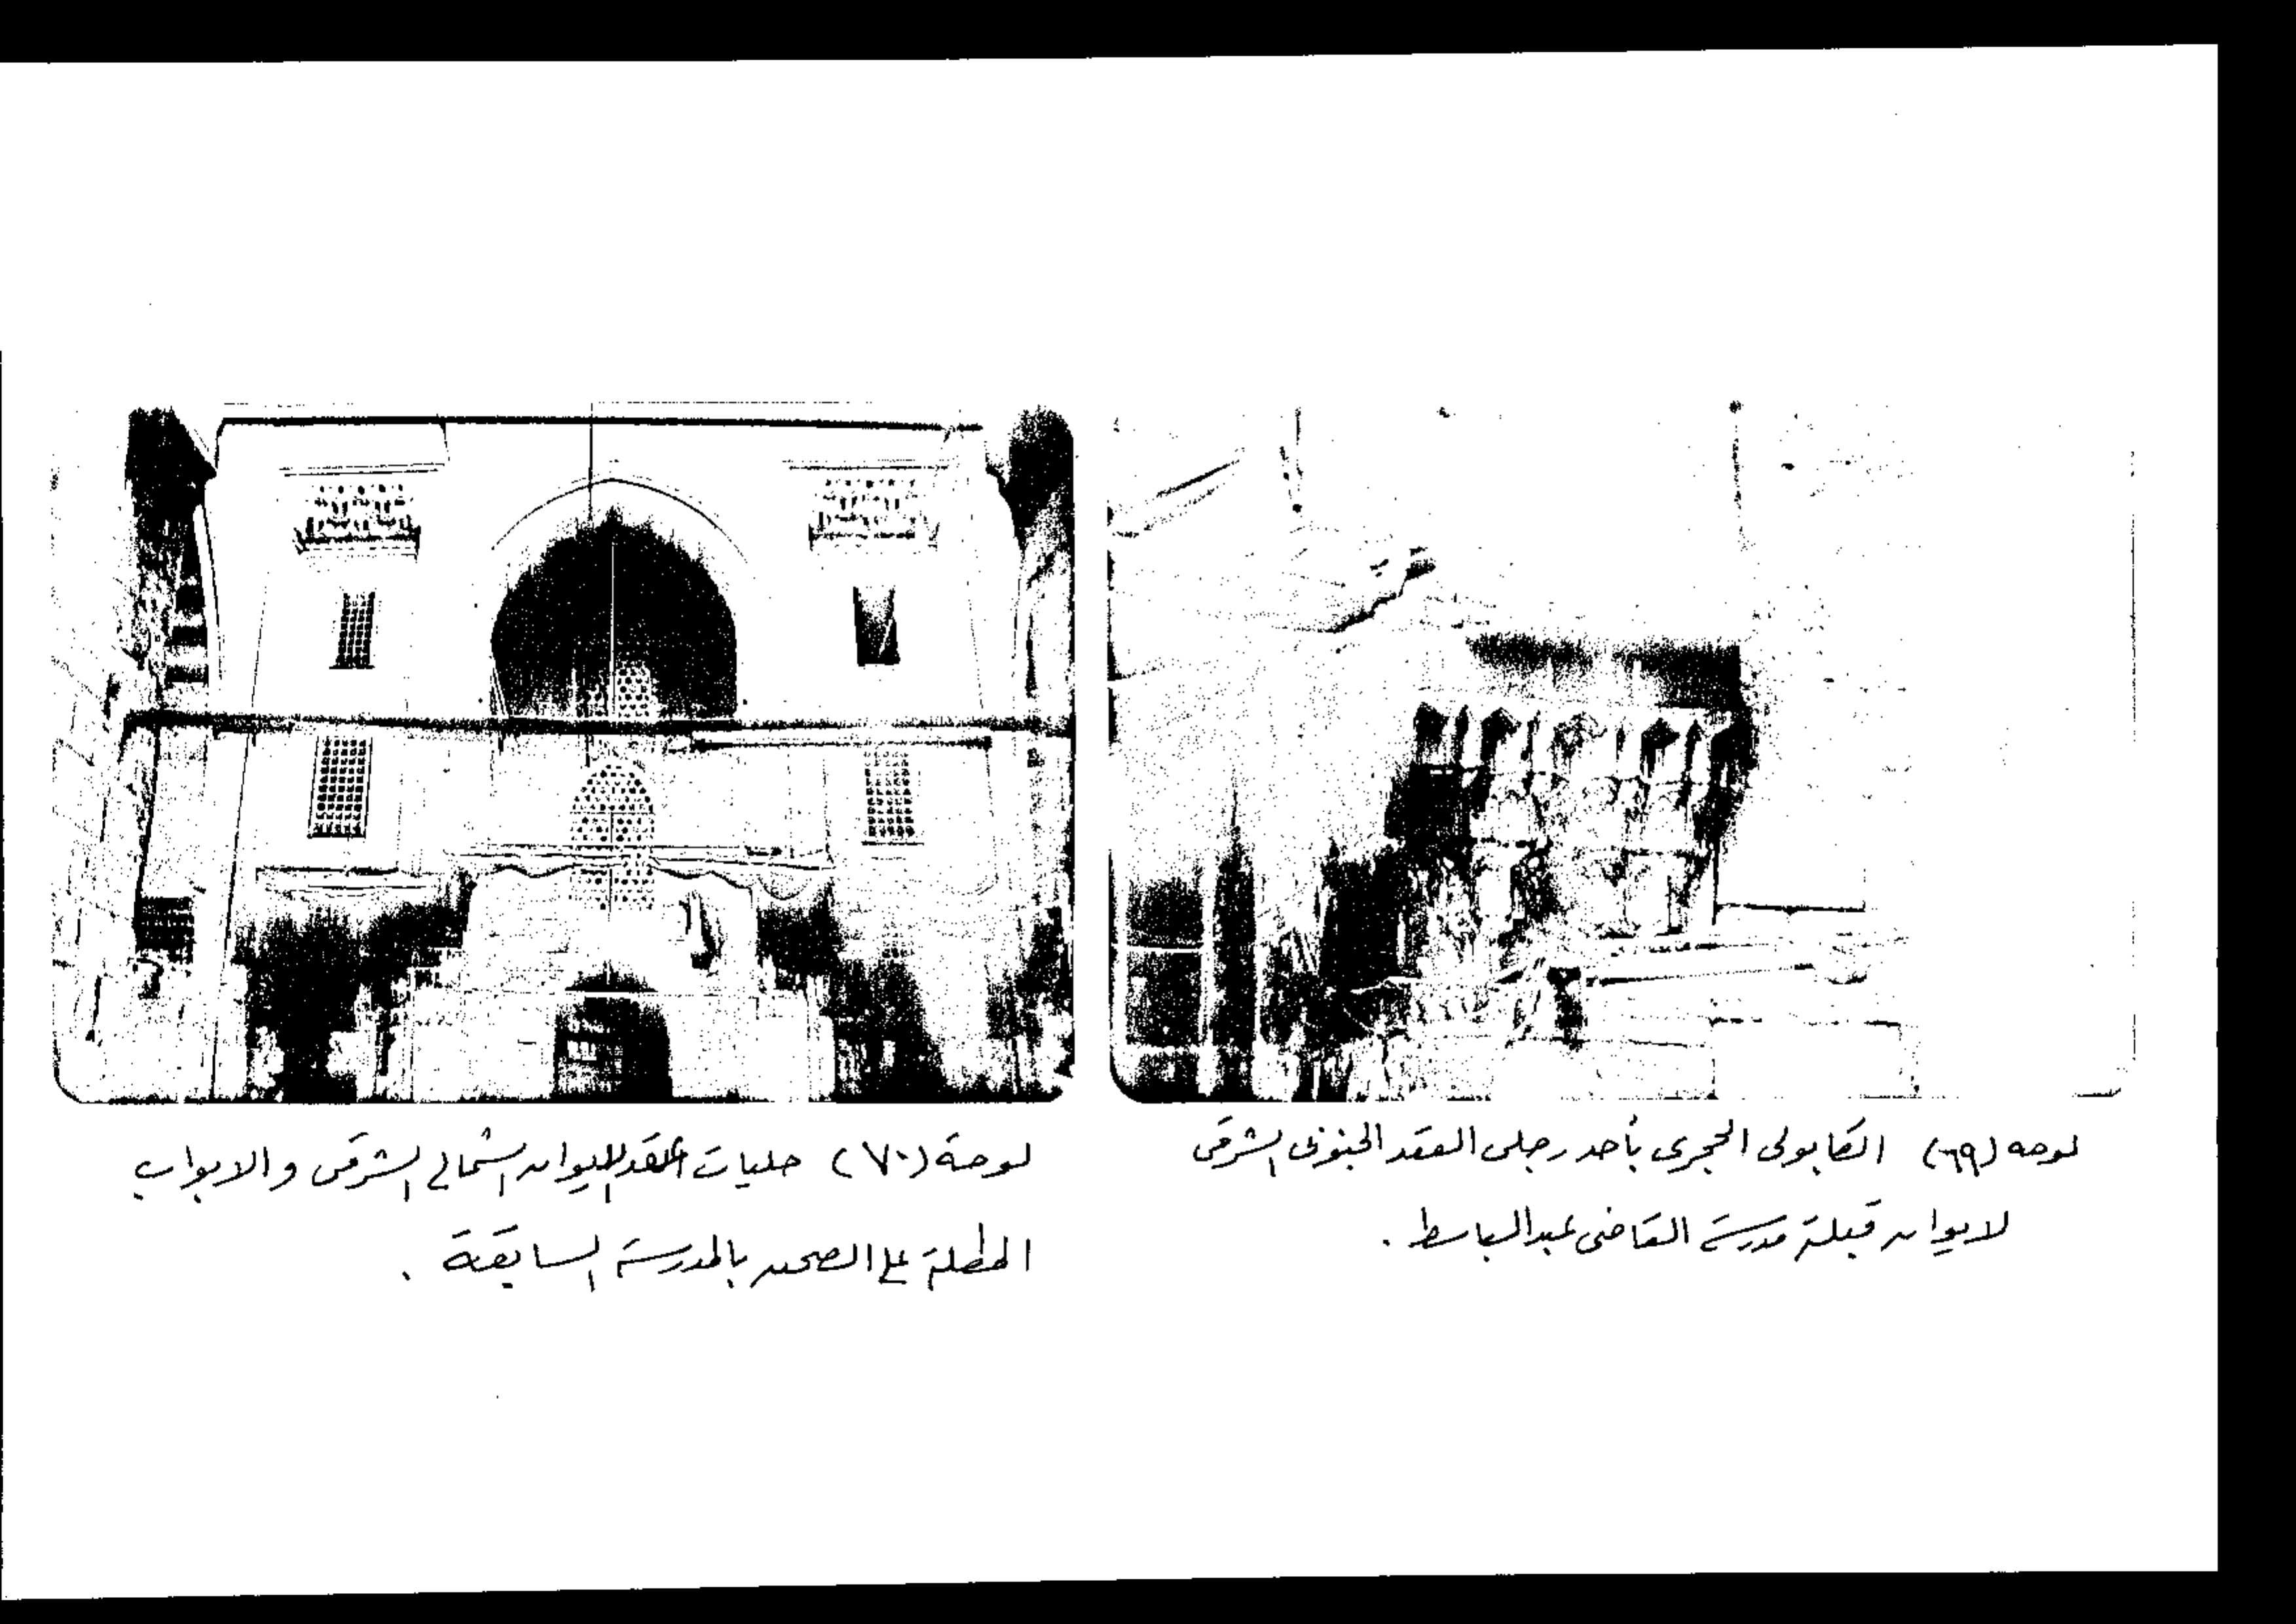 لوحه (٦٩) الكابولى الحجرى بأحد رجلى العقد الجنوبى الشرقى
لايوان قبلة مدرسة القاضى عبدالباسط .
لوحة (٧٠) حليات العقد للايوان الشمالى الشرقى والابواب
المطلة على الصحن بالمدرسة السابقة .